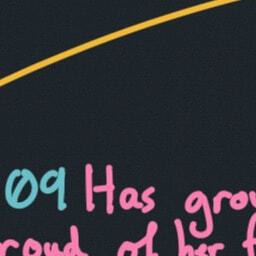 09 Has grow
proud of her f